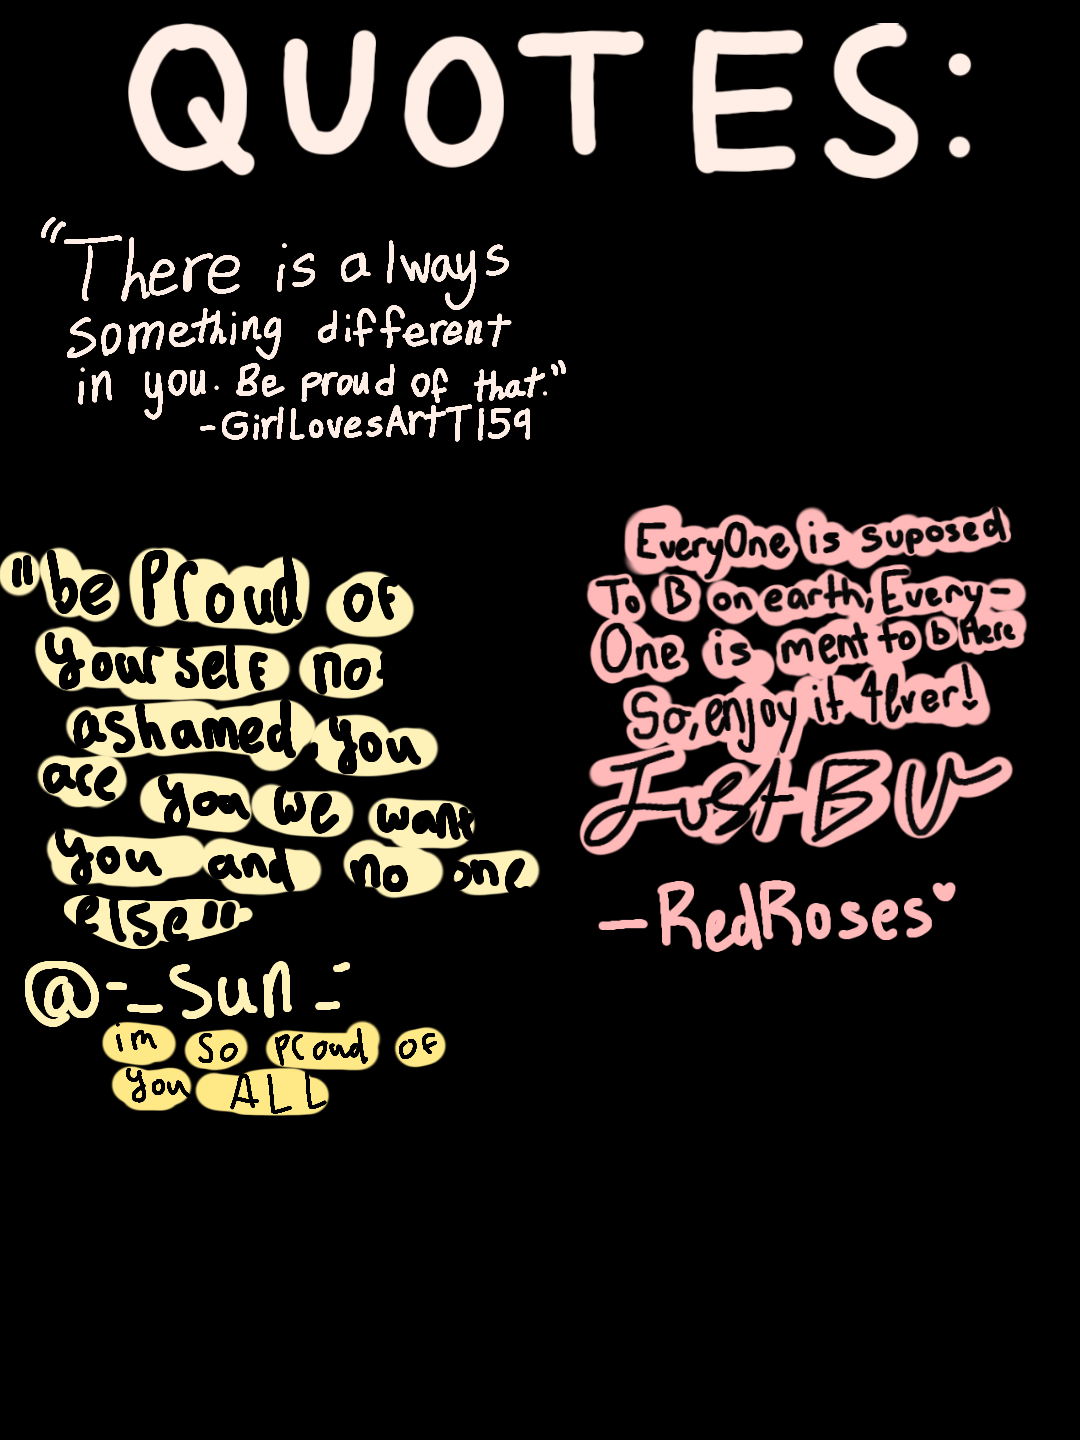 QUOTES:
"There is always
something different
in you. Be proud of that."
-GirlLovesArtT159
"be Proud of
yourself no
ashamed, you
are you we want
you and no one
else"
@-_Sun_-
im so proud of
you ALL
EveryOne is suposed
To B on earth, Every-
One is ment to b Here
So, enjoy it 4ever!
Just B U
-RedRoses♥